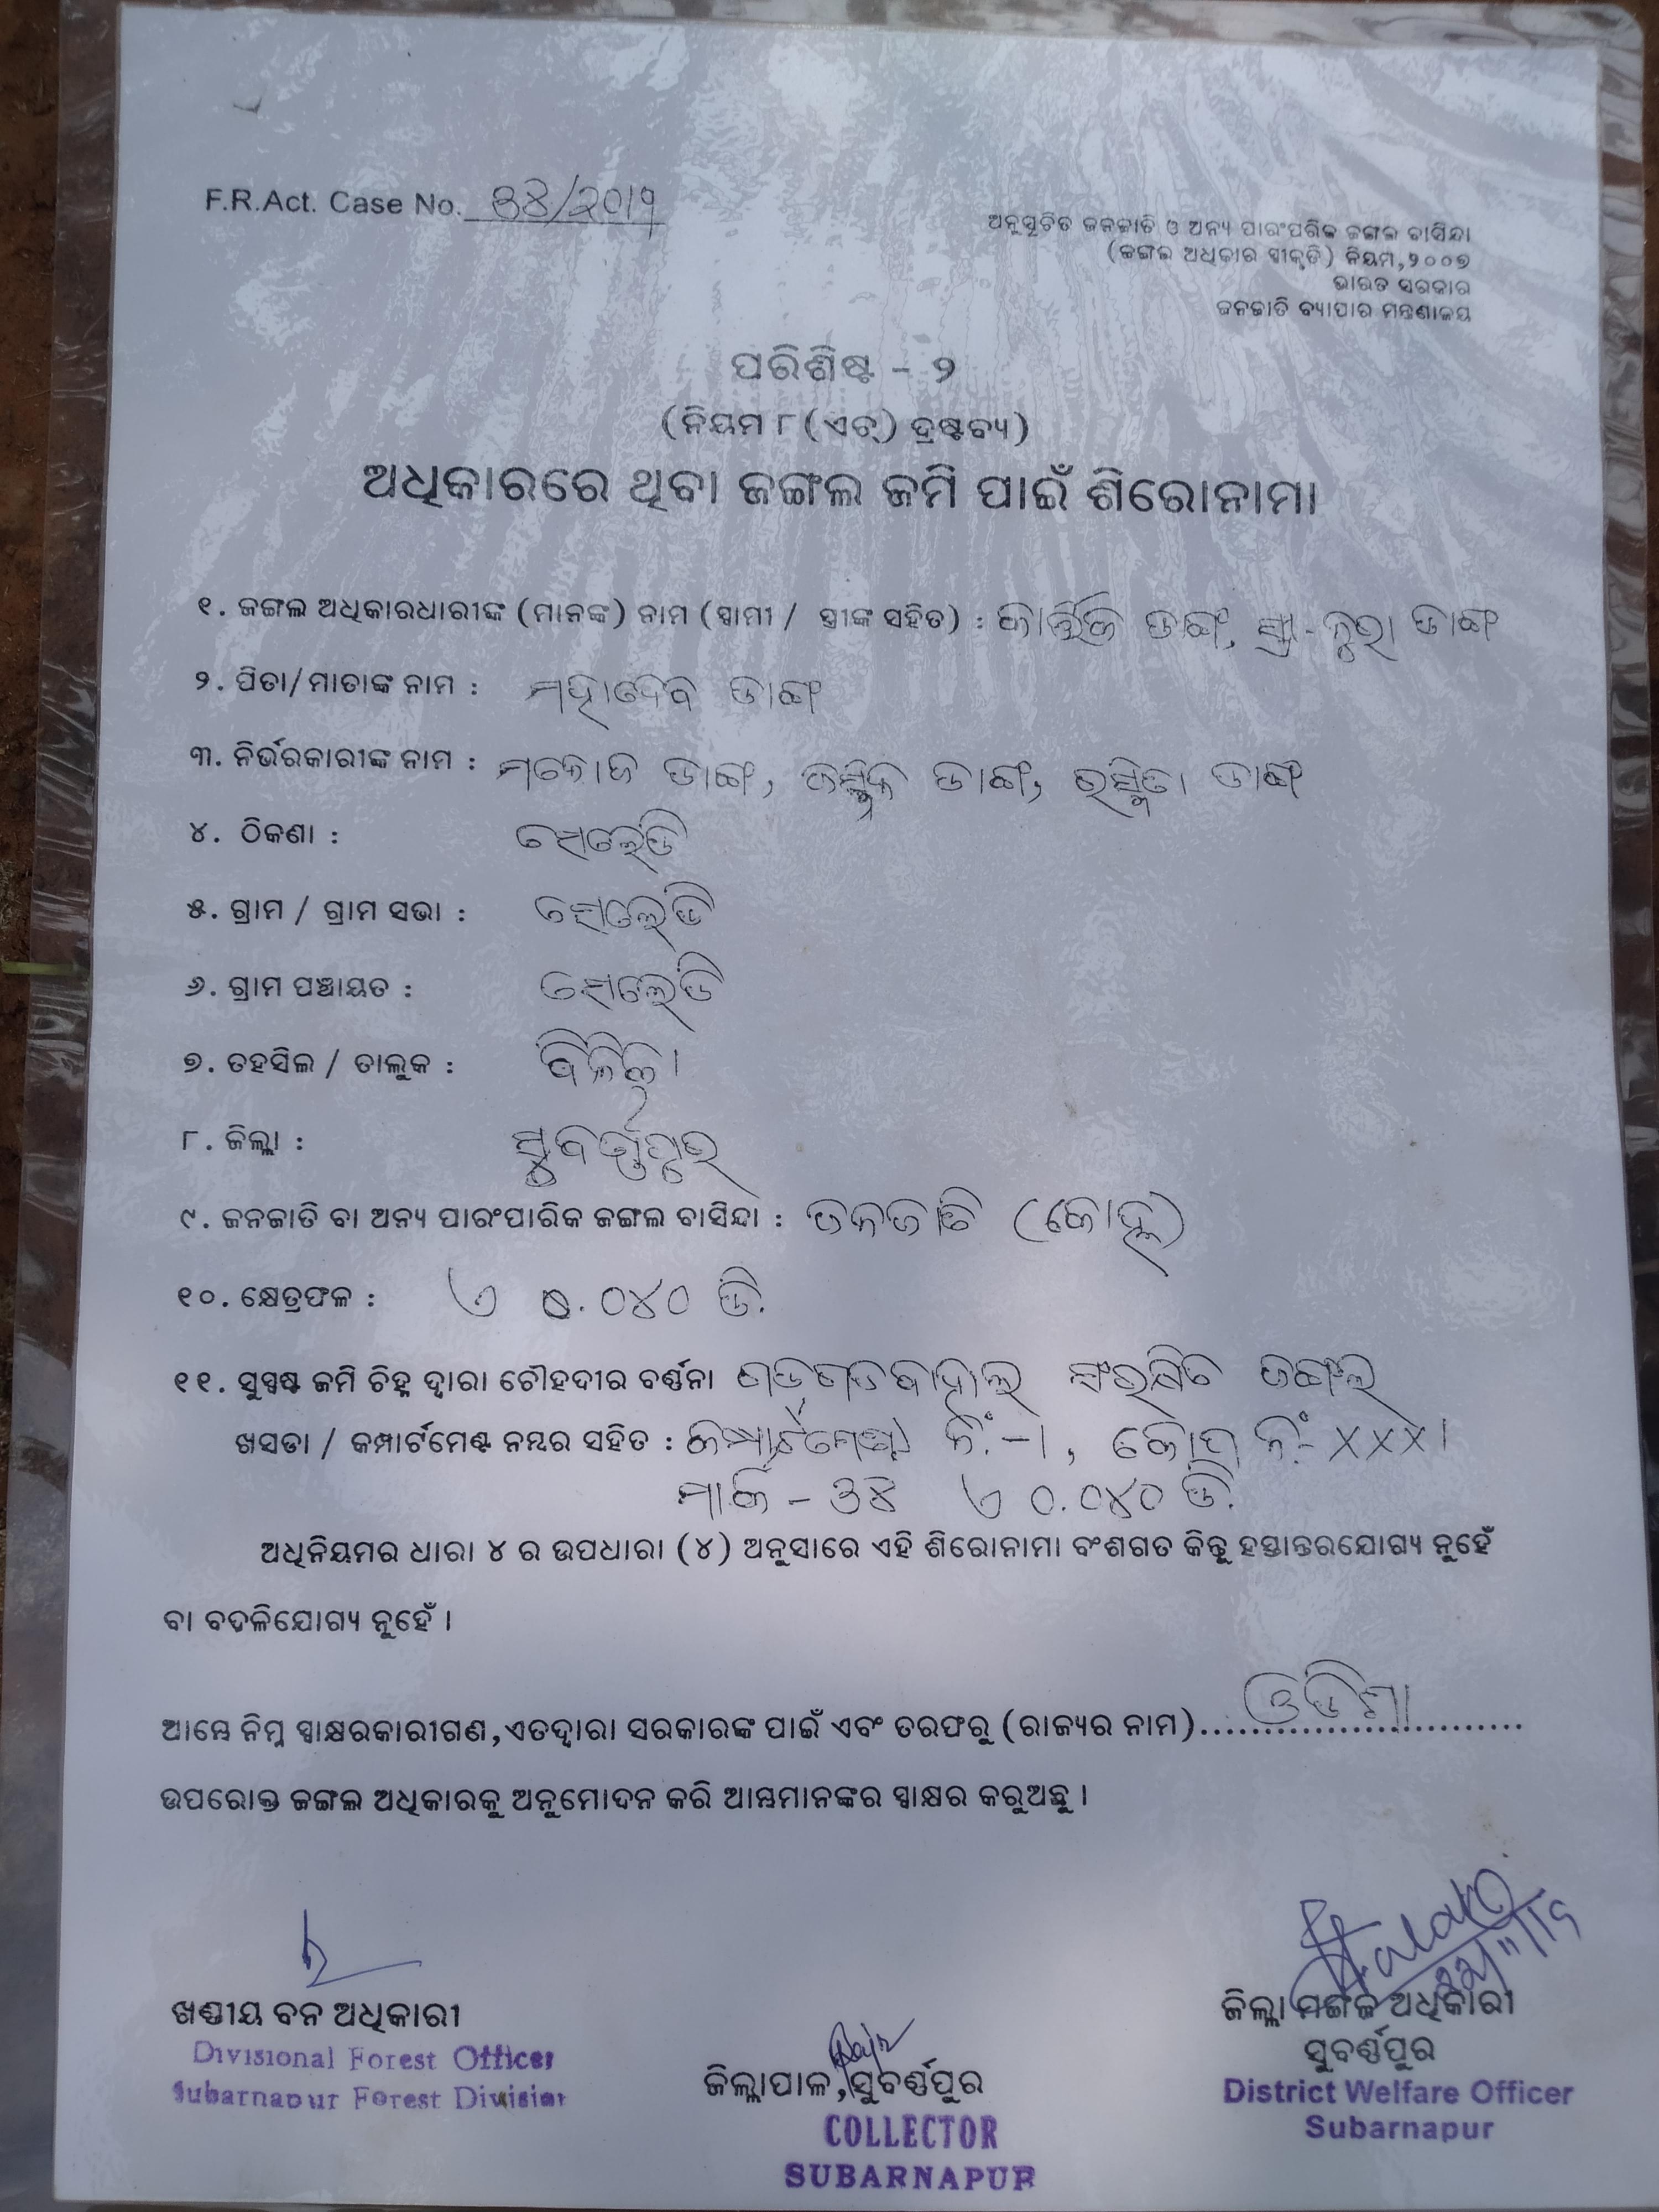 F.R.Act. Case No. ୭୪/୨୦୧୨
ଅନୁସୂଚିତ ଜନଜାତି ଓ ଅନ୍ୟ ପାରଂପରିକ ଜଙ୍ଗଲ ବାସିନ୍ଦା
(ଜଙ୍ଗଲ ଅଧିକାର ସ୍ୱୀକୃତି) ନିୟମ,୨୦୦୭
ଭାରତ ସରକାର
ଜନଜାତି ବ୍ୟାପାର ମନ୍ତ୍ରଣାଳୟ
ପରିଶିଷ୍ଟ - ୨
(ନିୟମ ୮ (ଏଚ୍) ଦ୍ରଷ୍ଟବ୍ୟ)
ଅଧିକାରରେ ଥିବା ଜଙ୍ଗଲ ଜମି ପାଇଁ ଶିରୋନାମା
୧. ଜଙ୍ଗଲ ଅଧିକାରଧାରୀଙ୍କ (ମାନଙ୍କ) ନାମ (ସ୍ୱାମୀ / ସ୍ତ୍ରୀଙ୍କ ସହିତ) : କାର୍ତ୍ତିକ ଡାଙ୍ଗ, ସ୍ତ୍ରୀ- ଡାଙ୍ଗ
୨. ପିତା/ମାତାଙ୍କ ନାମ : ମହାଦେବ ଡାଙ୍ଗ
୩. ନିର୍ଭରକାରୀଙ୍କ ନାମ : ମନୋଜ ଡାଙ୍ଗ, ଡାଙ୍ଗ, ରସ୍ମିତା ଡାଙ୍ଗ
୪. ଠିକଣା :
୫. ଗ୍ରାମ / ଗ୍ରାମ ସଭା :
୬. ଗ୍ରାମ ପଞ୍ଚାୟତ :
୭. ତହସିଲ / ତାଲୁକ :
୮. ଜିଲ୍ଲା : ସୁବର୍ଣ୍ଣପୁର
୯. ଜନଜାତି ବା ଅନ୍ୟ ପାରଂପାରିକ ଜଙ୍ଗଲ ବାସିନ୍ଦା : ଜନଜାତି (କୋହ୍ଲ)
୧୦. କ୍ଷେତ୍ରଫଳ : ଏ ୦.୦୪୦ ଡି.
୧୧. ସୁସ୍ପଷ୍ଟ ଜମି ଚିହ୍ନ ଦ୍ୱାରା ଚୌହଦୀର ବର୍ଣ୍ଣନା ସଂରକ୍ଷିତ ଜଙ୍ଗଲ
ଖସଡା / କମ୍ପାର୍ଟମେଣ୍ଟ ନମ୍ବର ସହିତ : କମ୍ପାର୍ଟମେଣ୍ଟ ନଂ.-୧, ନଂ- XXX।
୭୪ ଏ ୦.୦୪୦ ଡି.
ଅଧିନିୟମର ଧାରା ୪ ର ଉପଧାରା (୪) ଅନୁସାରେ ଏହି ଶିରୋନାମା ବଂଶଗତ କିନ୍ତୁ ହସ୍ତାନ୍ତରଯୋଗ୍ୟ ନୁହେଁ
ବା ବଦଳିଯୋଗ୍ୟ ନୁହେଁ ।
ଆମ୍ଭେ ନିମ୍ନ ସ୍ୱାକ୍ଷରକାରୀଗଣ,ଏତଦ୍ୱାରା ସରକାରଙ୍କ ପାଇଁ ଏବଂ ତରଫରୁ (ରାଜ୍ୟର ନାମ) ଓଡିଶା
ଉପରୋକ୍ତ ଜଙ୍ଗଲ ଅଧିକାରକୁ ଅନୁମୋଦନ କରି ଆମ୍ଭମାନଙ୍କର ସ୍ୱାକ୍ଷର କରୁଅଛୁ ।
ଖଣ୍ଡୀୟ ବନ ଅଧିକାରୀ
Divisional Forest Officer
Subarnapur Forest Division
ଜିଲ୍ଲାପାଳ,ସୁବର୍ଣ୍ଣପୁର
COLLECTOR
SUBARNAPUR
ଜିଲ୍ଲା ମଙ୍ଗଳ ଅଧିକାରୀ
ସୁବର୍ଣ୍ଣପୁର
District Welfare Officer
Subarnapur